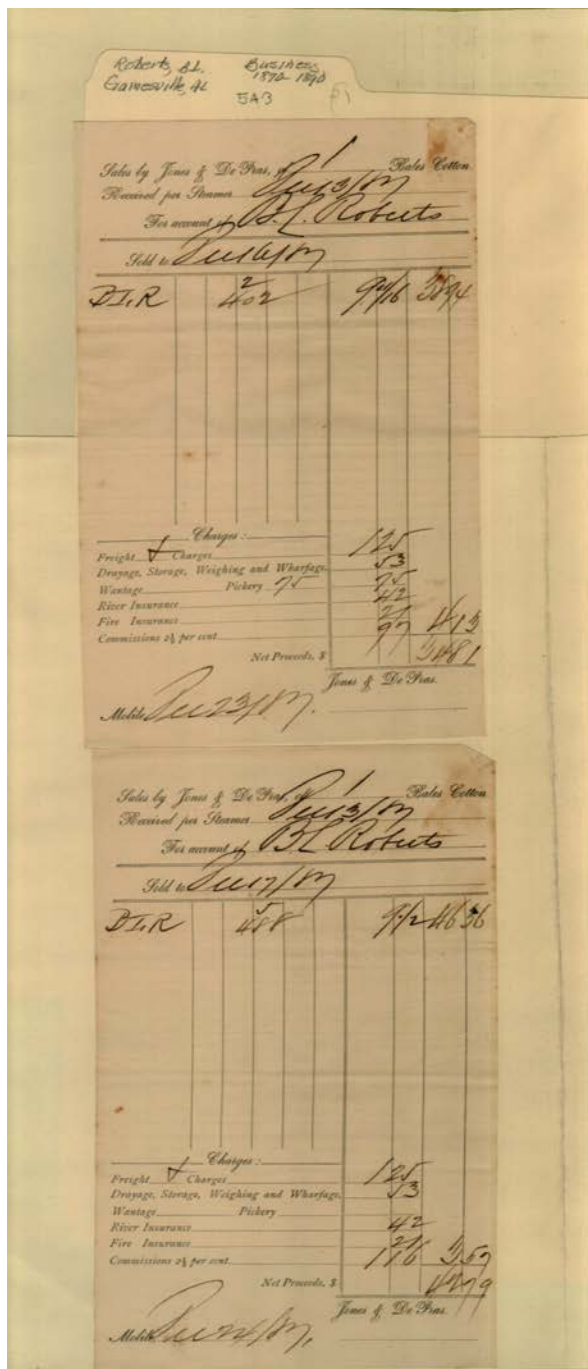 Roberts, B.L. Business
Gainesville, AL 1870-1890
5A3
Sales by Jones & De Pras, of 1 Bales Cotton
Received per Steamer Dec 13/87
For account of B.L. Roberts
Sold to Dec 16/87
B L R 2 402 38 94
Charges:
Freight & Charges 125
Drayage, Storage, Weighing and Wharfage. 53
Wantage Pickery 75 75
River Insurance 42
Fire Insurance 21
Commissions 2½ per cent 97 413
Net Proceeds, $ 3481
Jones & De Pras.
Mobile Dec 23/87.
Sales by Jones & De Pras, of 1 Bales Cotton
Received per Steamer Dec 13/87
For account of B L Roberts
Sold to Dec 17/87
B L R 5 488 9 1/2 46 36
Charges:
Freight & Charges 125
Drayage, Storage, Weighing and Wharfage. 53
Wantage Pickery
River Insurance 42
Fire Insurance 21
Commissions 2½ per cent 116 357
Net Proceeds, $ 4279
Jones & De Pras.
Mobile Dec 24/87.